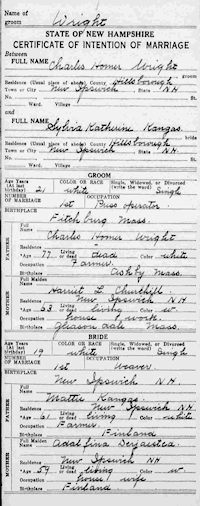 Name of groom Wright
STATE OF NEW HAMPSHIRE
CERTIFICATE OF INTENTION OF MARRIAGE
Between
FULL NAME Charles Homer Wright
groom
Residence (Usual place of abode) County Hillsborough
Town or City New Ipswich State NH
No. Ward. Village
and
FULL NAME Sylvia Katherine Kangas
bride
Residence (Usual place of abode) County Hillsborough
Town or City New Ipswich State NH
No. Ward. Village
GROOM
Age Years (At last birthday) 21 COLOR OR RACE white Single, Widowed, or Divorced (write the word) Single
NUMBER OF MARRIAGE 1st OCCUPATION
BIRTHPLACE
Fitchburg Mass.
FATHER Full Name Charles Homer Wright
Residence
Age 77 Living or dead dead Color white
Occupation Farmer
Birthplace Ashby Mass.
MOTHER Full Maiden Name Harriet L. Churchill
Residence New Ipswich NH
Age 53 Living or dead living Color w
Occupation house work
Birthplace Gleasondale Mass.
BRIDE
Age Years (At last birthday) 19 COLOR OR RACE white Single, Widowed, or Divorced (write the word) Single
NUMBER OF MARRIAGE 1st OCCUPATION Weaver
BIRTHPLACE
New Ipswich NH
FATHER Full Name Kangas
Residence New Ipswich NH
Age 61 Living or dead living Color white
Occupation Farmer
Birthplace Finland
MOTHER Full Maiden Name
Residence New Ipswich NH
Age 59 Living or dead living Color w
Occupation house wife
Birthplace Finland